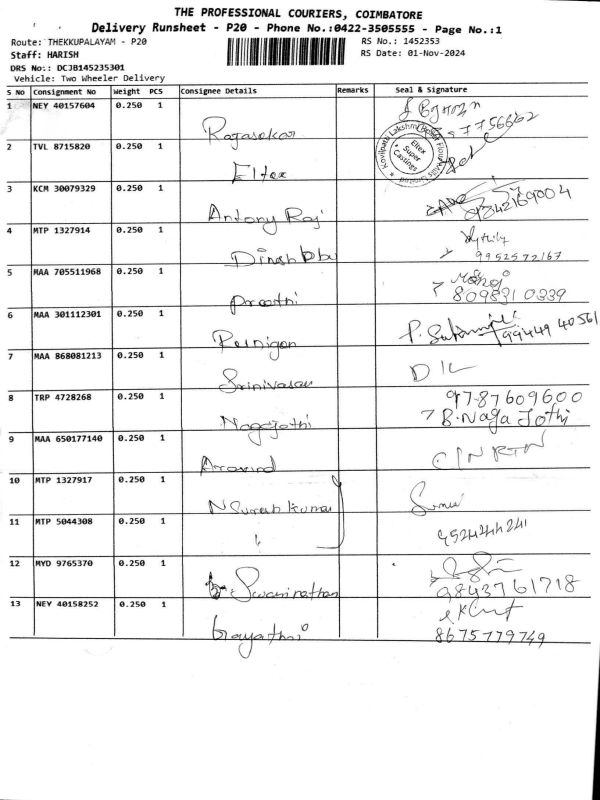 THE PROFESSIONAL COURIERS, COIMBATORE
Delivery Runsheet - P20 - Phone No.:0422-3505555 - Page No.:1
Route: THEKKUPALAYAM - P20
RS No.: 1452353
Staff: HARISH
RS Date: 01-Nov-2024
DRS No.: DCJB145235301
Vehicle: Two Wheeler Delivery
S No Consignment No Weight PCS Consignee Details Remarks Seal & Signature
1 NEY 40157604 0.250 1
Rajasekar
2 TVL 8715820 0.250 1
Eltex
Eltex Super Castings
3 KCM 30079329 0.250 1
Antony Raj 9842169004
4 MTP 1327914 0.250 1
Dinesh 9952572167
5 MAA 705511968 0.250 1
Preethi 8098310339
6 MAA 301112301 0.250 1
99449 40561
7 MAA 868081213 0.250 1
Srinivasan
8 TRP 4728268 0.250 1 97-87609600
Nagajothi B. Naga Jothi
9 MAA 650177140 0.250 1
Aravind
10 MTP 1327917 0.250 1
N Suresh Kumar
11 MTP 5044308 0.250 1
12 MYD 9765370 0.250 1
Swaminathan 9843761718
13 NEY 40158252 0.250 1
Gayathri 8675779749